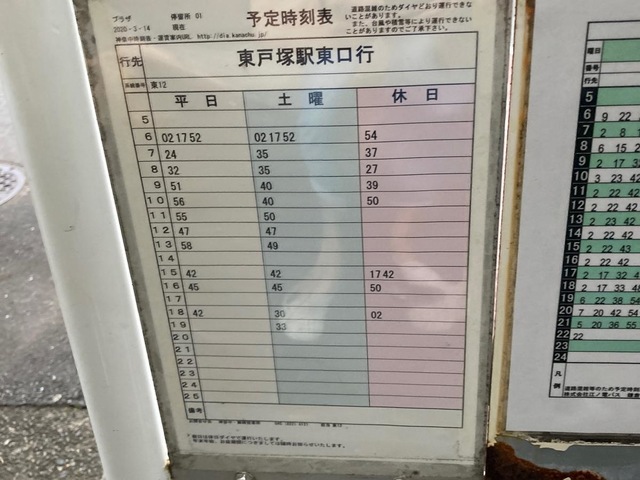 プラザ 停留所 01
2020-3-14 現在
予定時刻表
道路混雑のためダイヤどおり運行できないことがあります。
また、台風や積雪等により運行できないことがありますのでご了承下さい。
http://dia.kanachu.jp/
行先 東戸塚駅東口行
系統番号 東12
平日 土曜 休日
5
6 02 17 52 02 17 52 54
7 24 35 37
8 32 35 27
9 51 40 39
10 56 40 50
11 55 50
12 47 47
13 58 49
14
15 42 42 17 42
16 45 45 50
17
18 42 30 02
19 33
20
21
22
23
24
25
備考
曜日
番号
行先
5
6 9 22
7 8
8 6 15 2
9 2 17 3
10 3 23 42
11 2 22 42
12 2 22 42
13 2 23 42
14 2 22 42
15 2 22 43
16 2 22 42
17 2 17 32 4
18 2 17 33 48
19 6 22 38 54
20 7 20 42 54
21 5 20 36 55
22 22
23
24
凡例
道路混雑等のため予定時
株式会社江ノ電バス